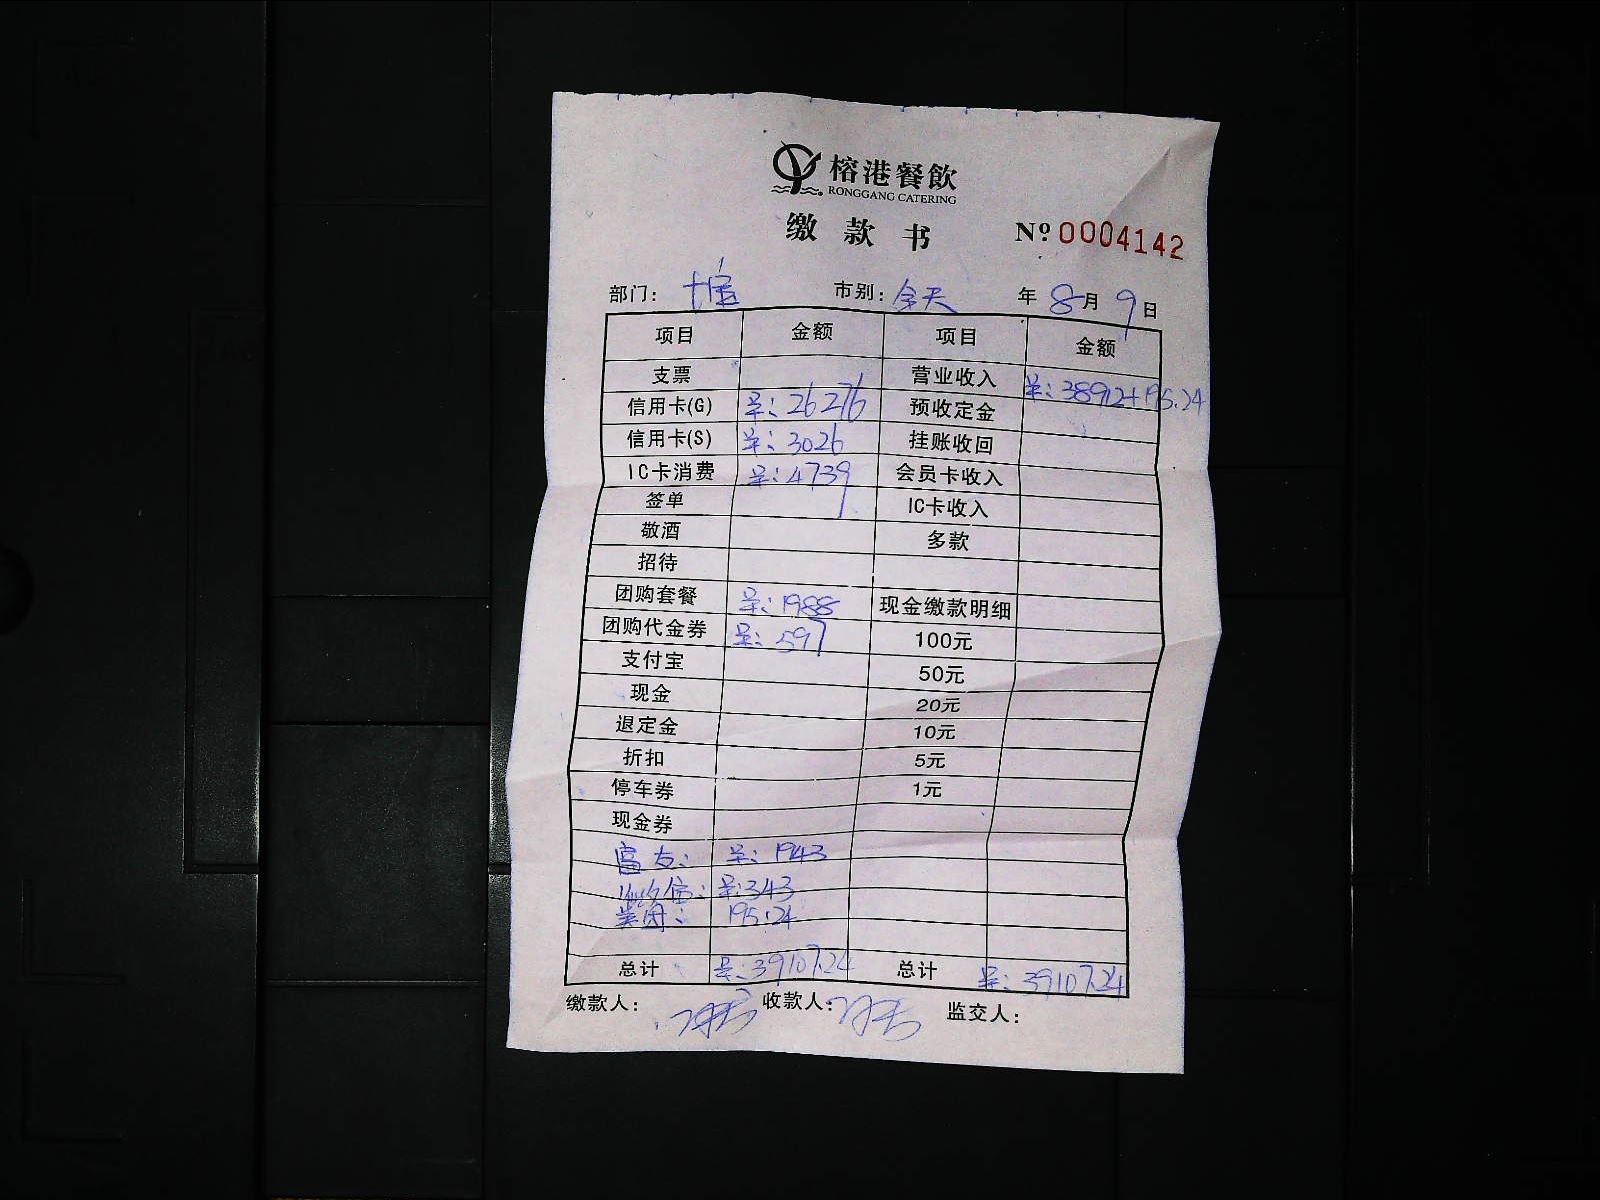 榕港餐飲
RONGGANG CATERING
缴款书 Nº 0004142
部门: 市别: 全天 年 8月 9日
项目 金额 项目 金额
支票 营业收入 单: 38912+195.24
信用卡(G) 单: 26276 预收定金
信用卡(S) 单: 3026 挂账收回
IC卡消费 单: 4739 会员卡收入
签单 IC卡收入
敬酒 多款
招待
团购套餐 单: 1988 现金缴款明细
团购代金券 单: 597 100元
支付宝 50元
现金 20元
退定金 10元
折扣 5元
停车券 1元
现金券
富友: 单: 1943
微信: 单: 343
美团: 195.24
总计 单: 39107.24 总计 单: 39107.24
缴款人: 收款人: 监交人: